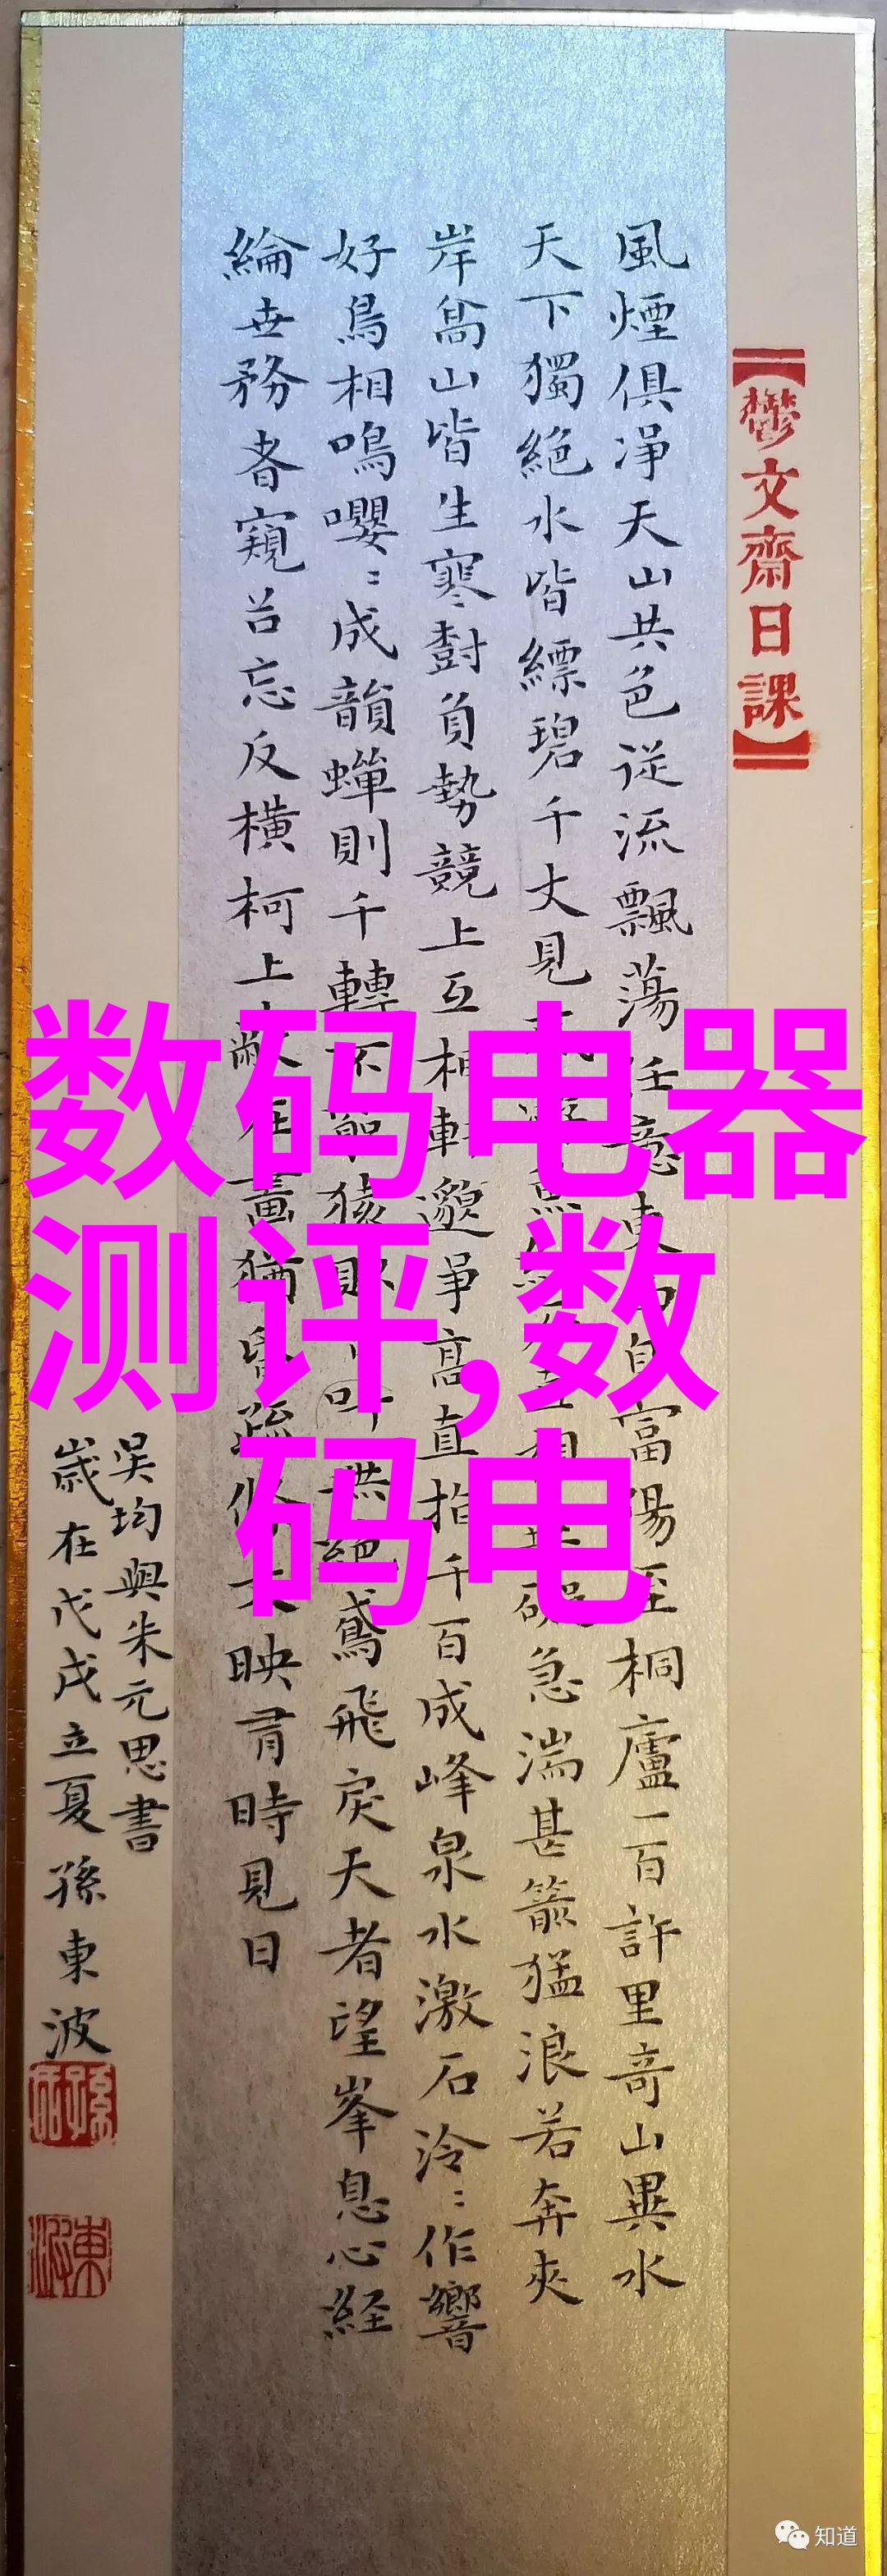 【鬱文齋日課】
風煙俱淨天山共色從流飄蕩任意東西自富陽至桐廬一百許里奇山異水
天下獨絕水皆縹碧千丈見魚礙急湍甚箭猛浪若奔夾
岸高山皆生寒樹負勢競上互相軒邈爭高直指千百成峰泉水激石泠〻作響
好鳥相鳴嚶〻成韻蟬則千轉不窮猿則叫無絕鳶飛戾天者望峯息心経
綸世務者窺谷忘反橫柯上蔽在晝猶昏疏條交映有時見日
吳均與朱元思書
歲在戊戌立夏孫東波
数码电器
测评,数
码电
知道